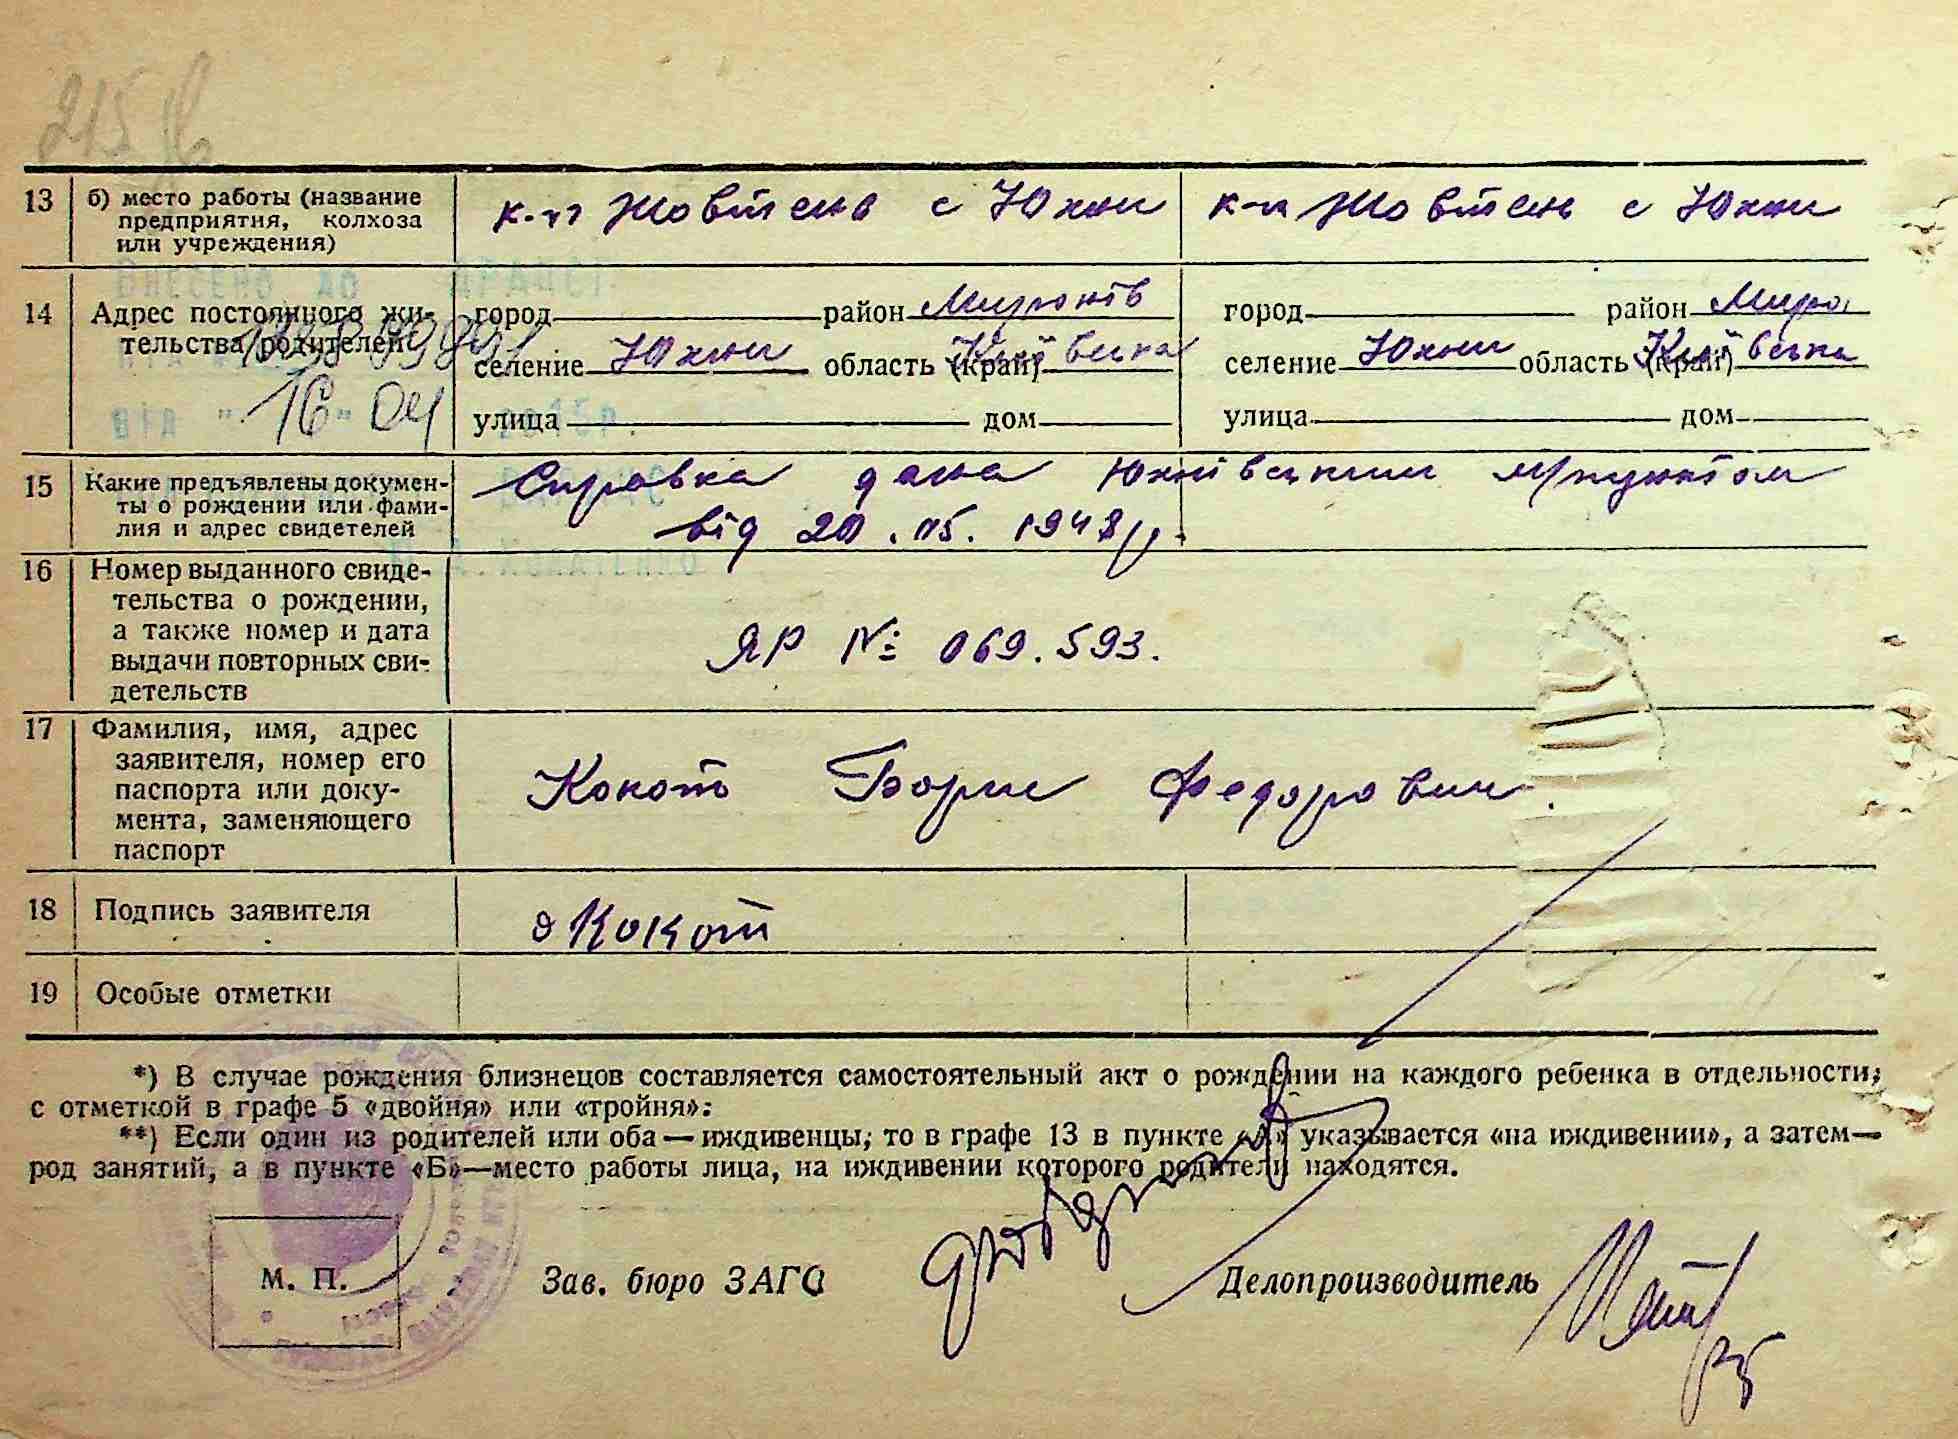 215
13 б) место работы (название предприятия, колхоза или учреждения) к-п Жовтень с Юхни к-п Жовтень с Юхни
Внесено до
14 Адрес постоянного жи-
тельства родителей
город район Миронів город район Миро
селение Юхни область (край) Київська селение Юхни область (край) Київська
від " 16 " 04 2015р. улица дом улица дом
15 Какие предъявлены докумен-
ты о рождении или фами-
лия и адрес свидетелей
Справка дана Юхнівським
від 20.05.1948р.
16 Номер выданного свиде-
тельства о рождении,
а также номер и дата
выдачи повторных сви-
детельств
ЯР № 069.593.
17 Фамилия, имя, адрес
заявителя, номер его
паспорта или доку-
мента, заменяющего
паспорт
Кокот Борис Федорович.
18 Подпись заявителя Кокот
19 Особые отметки
*) В случае рождения близнецов составляется самостоятельный акт о рождении на каждого ребенка в отдельности,
с отметкой в графе 5 «двойня» или «тройня».
**) Если один из родителей или оба — иждивенцы, то в графе 13 в пункте «А» указывается «на иждивении», а затем—
род занятий, а в пункте «Б»—место работы лица, на иждивении которого родители находятся.
М. П. Зав. бюро ЗАГС Делопроизводитель